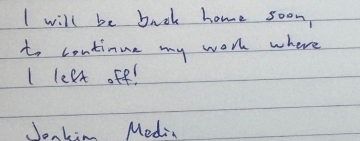 I will be back home soon,
to continue my work where
I left off!
Joakim Medin